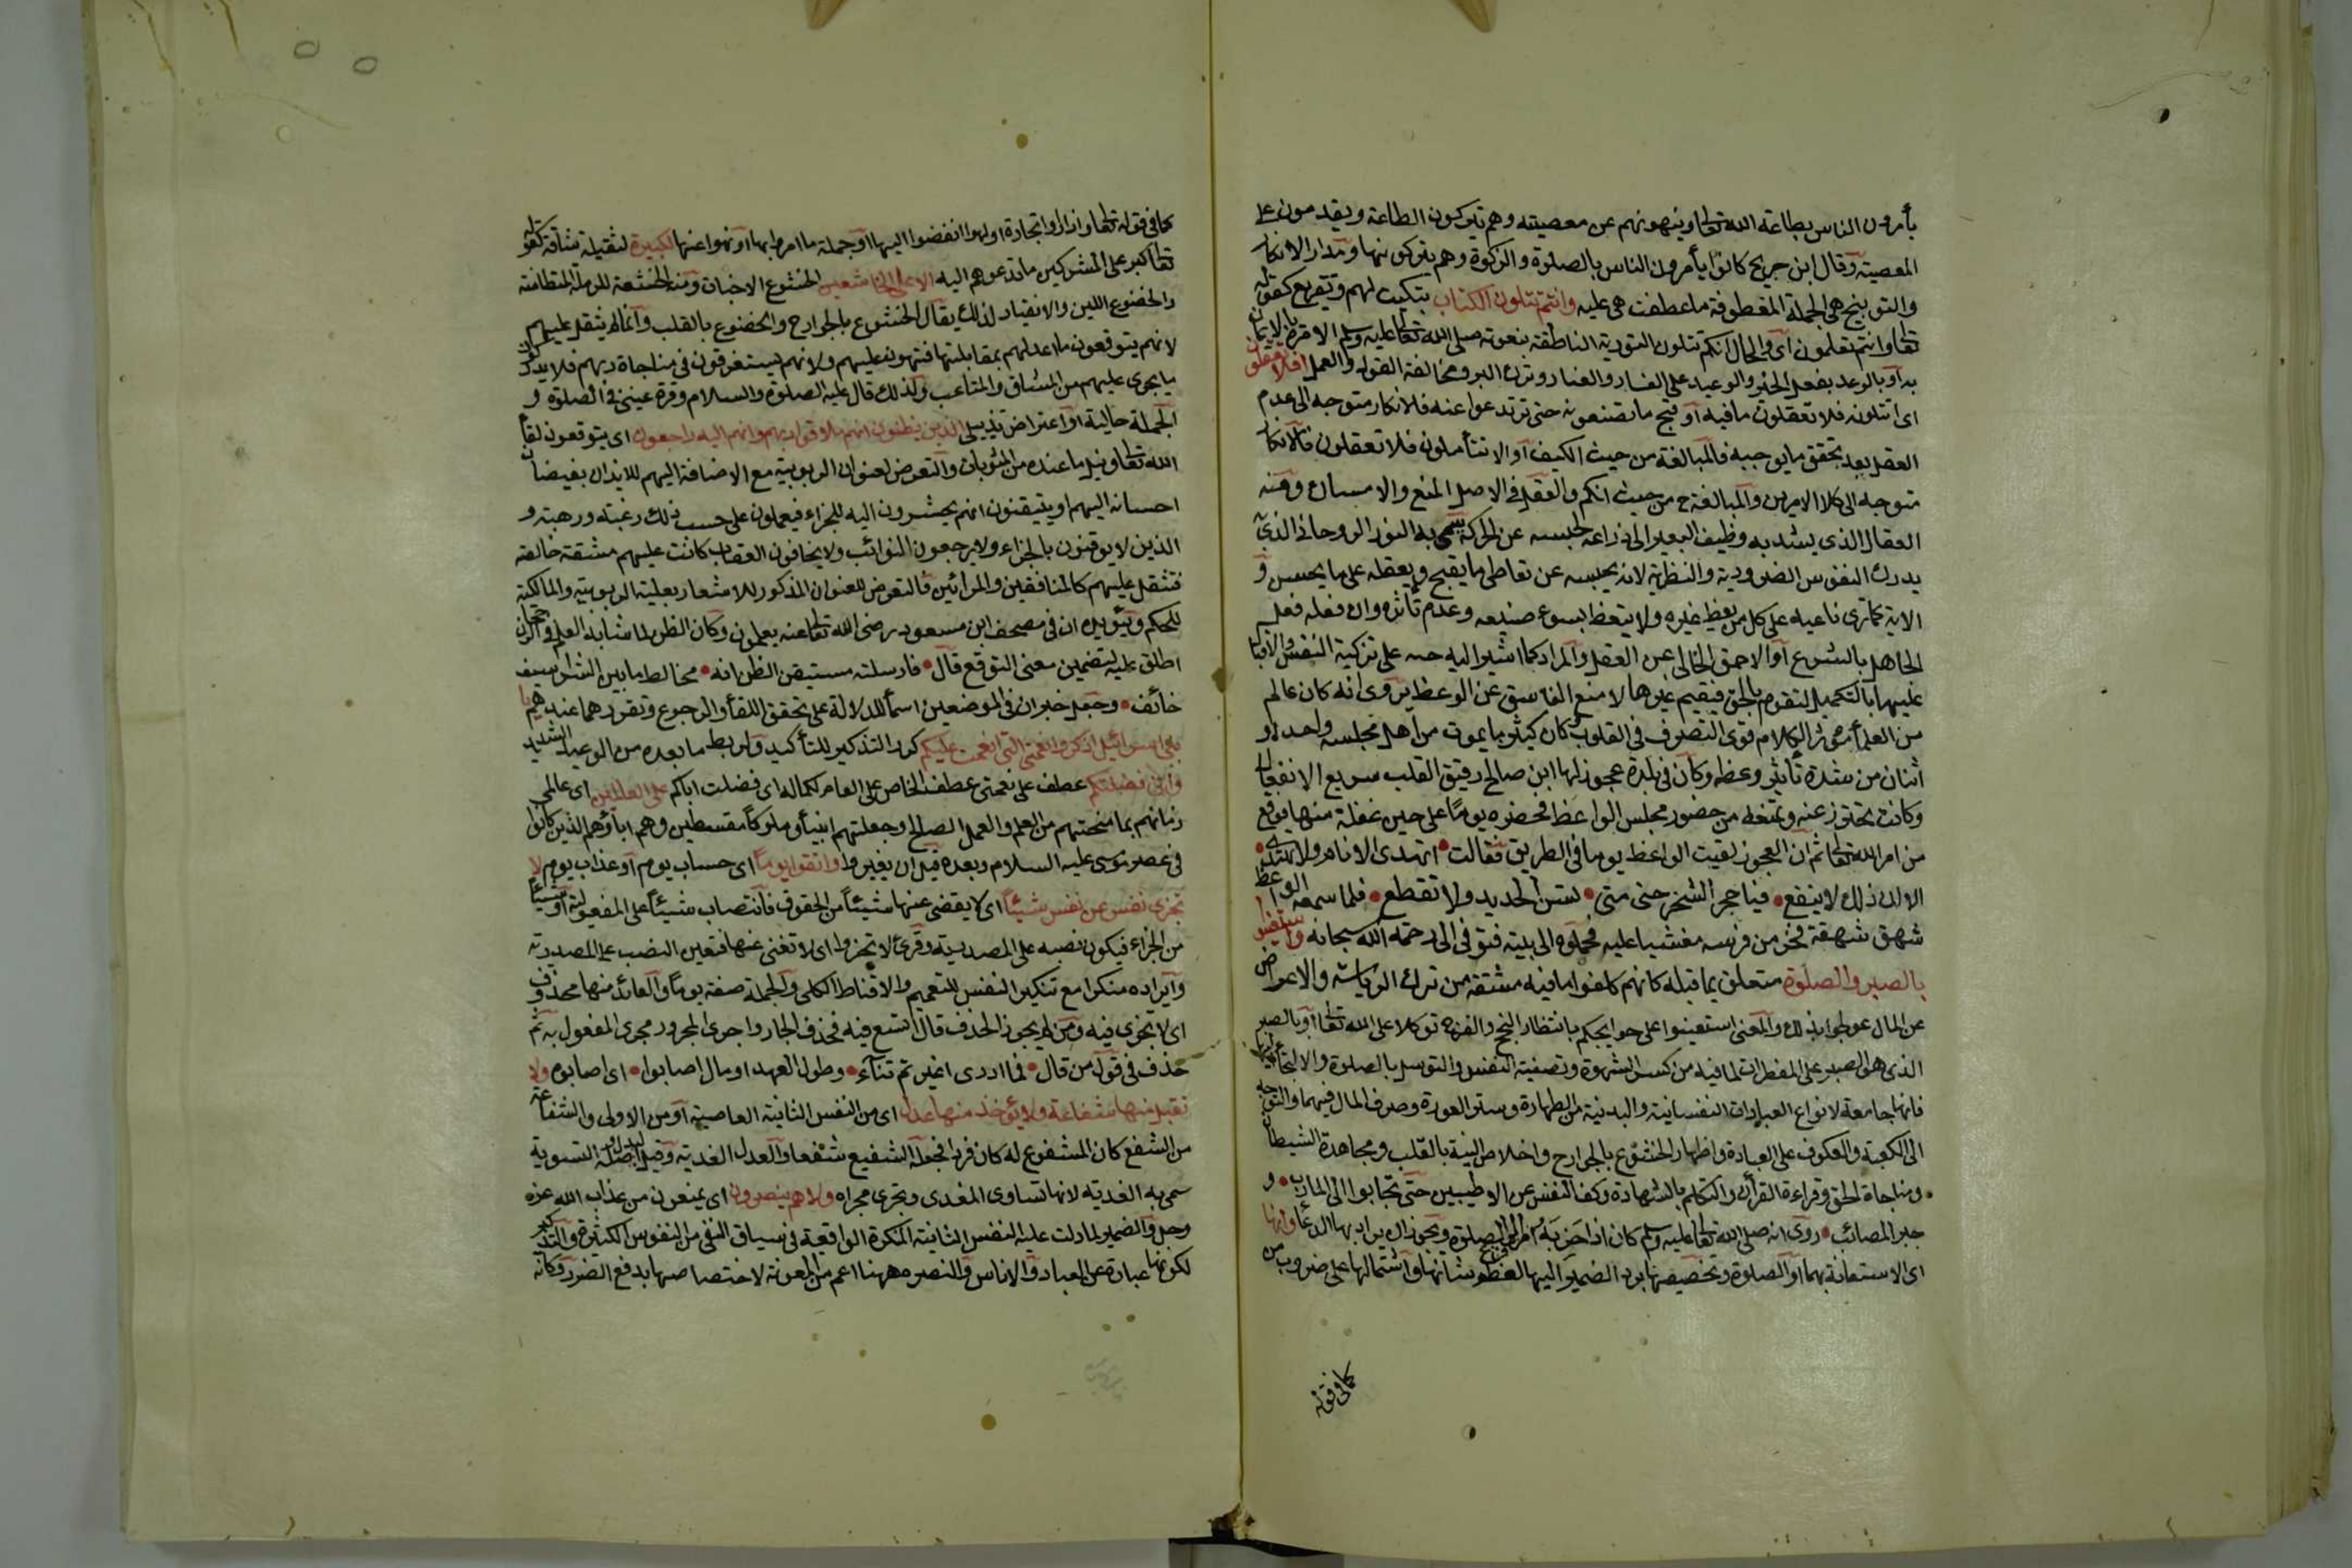 يأمرون الناس بطاعة الله تعالى وينهونهم عن معصيته وهم يتركون الطاعة ويقدمون على
المعصية وقال ابن جريج كانوا يأمرون الناس بالصلوة والزكوة وهم يتركونها ومدار الانكار
والتوبيخ هى الجملة المعطوفة ما عطفت هى عليه وانتم تتلون الكتاب تبكيت لهم وتقريع كقوله
تعالى وانتم تعلمون اى والحال انكم تتلون التورية الناطقة بنعوته صلى الله تعالى عليه وسلم الامرة بالايمان
به او بالوعد بفعل الخير والوعيد على الفساد والعناد وترك البر ومخالفة القول والعمل افلا تعقلون
اى اتتلونه فلا تعقلون ما فيه او قبح ما تصنعونه حتى ترتدعوا عنه فالانكار متوجه الى عدم
العقل بعد تحقق ما يوجبه فالمبالغة من حيث الكيف او الا تتأملون فلا تعقلون فالانكار
متوجه الى كلا الامرين والمبالغة ح من حيث الكم والعقل فى الاصل المنع والامساك ومنه
العقال الذى يشد به وظيف البعير الى ذراعه لحبسه عن الحراك سمى به النور الروحانى الذى به
يدرك النفوس الضرورية والنظرية لانه يحبسه عن تعاطى ما يقبح ويعقله على ما يحسن و
الاية كما ترى ناعيه على كل من يعظ غيره ولا يتعظ بسوء صنيعه وعدم تأثره وان فعله فعل
الجاهل بالشرع او الاحمق الخالى عن العقل والمراد كما اشير اليه حثه على تزكية النفس والاقبال
عليها بالتكميل لتقوم بالحق فيقيم غيرها لا منع الفاسق عن الوعظ يروى انه كان عالم
من العلمأ مؤثر الكلام قوى التصرف فى القلوب وكان كثيرا ما يموت من اهل مجلسه واحد او
اثنان من شدة تأثير وعظه وكان فى بلدة عجوز لها ابن صالح رقيق القلب سريع الانفعال
وكانت تحترز عنه وتمنعه من حضور مجلس الواعظ فحضره يوما على حين غفلة منها فوقع
من امر الله تعالى ثم ان العجوز لقيت الواعظ يوما فى الطريق فقالت اتهدى الانام ولا تهتدى
الا ان ذلك لا ينفع فيا حجر الشحذ حتى متى تسن الحديد ولا تقطع فلما سمعه الواعظ
شهق شهقة فخر من فرسه مغشيا عليه فحملوه الى بيته فتوفى الى رحمة الله سبحانه واستعينوا
بالصبر والصلوة متعلق بما قبله كانهم كلفوا ما فيه مشقة من ترك الرياسة والاعراض
عن المال عولجوا بذلك والمعنى استعينوا على حوايجكم بانتظار النجح والفرج توكلا على الله تعالى او بالصبر
الذى هو الصبر على المفطرات لما فيه من كسر الشهوة وتصفية النفس والتوسل بالصلوة والالتجأ اليها
فانها جامعة لانواع العبادات النفسانية والبدنية من الطهارة وستر العورة وصرف المال فيهما والتوجه
الى الكعبة والعكوف على العبادة واظهار الخشوع بالجوارح واخلاص النية بالقلب ومجاهدة الشيطان
ومناجاة الحق وقراءة القرأن والتكلم بالشهادة وكف النفس عن الاطيبين حتى تجابوا الى المارب و
جبر المصائب روى انه صلى الله تعالى عليه وسلم كان اذا حزبه امر فزع الى الصلوة ويجوز ان يراد بها الدعأ وانها
اى الاستعانة بهما او الصلوة وتخصيصها برد الضمير اليها لعظم شانها واشتمالها على ضروب من
كما فى قوله
كما فى قوله تعالى واذا راوا تجارة او لهوا انفضوا اليها او جملة ما امروا بها او نهوا عنها لكبيرة لثقيلة شاقة كقوله
تعالى كبر على المشركين ما تدعوهم اليه الا على الخاشعين الخشوع الاخبات ومنه الخشعة للرملة المتطامنة
والخضوع اللين والانقياد لذلك يقال الخشوع بالجوارح والخضوع بالقلب وانما لم يثقل عليهم
لانهم يتوقعون ما اعد لهم بمقابلتها فتهون عليهم ولانهم يستغرقون فى مناجاة ربهم فلا يدركون
ما يجرى عليهم من المشاق والمتاعب ولذلك قال عليه الصلوة والسلام وقرة عينى فى الصلوة و
الجملة حالية او اعتراض تذييلى الذين يظنون انهم ملاقوا ربهم وانهم اليه راجعون اى يتوقعون لقأ
الله تعالى ونيل ما عنده من المثوبات والتعرض لعنوان الربوبية مع الاضافة اليهم للايذان بفيضان
احسانه اليهم او يتيقنون انهم يحشرون اليه للجزاء فيعملون على حسب ذلك رغبة ورهبة و
الذين لا يوقنون بالجزاء ولا يرجعون الثوائب ولا يخافون العقاب كانت عليهم مشقة خالصة
فتثقل عليهم كالمنافقين والمرائين فالتعرض للعنوان المذكور للاشعار بعلية الربوبية والمالكية
للحكم ويؤيده ان فى مصحف ابن مسعود رضى الله تعالى عنه يعلمون وكان الظن لما شابه العلم فى الرجحان
اطلق عليه لتضمين معنى التوقع قال فارسلته مستيقن الظن انه مخالط ما بين الشراسيف
خائف وجعل خبر ان فى الموضعين اسمأ للدلالة على تحقق اللقأ والرجوع وتقررهما عندهم يا
بنى اسرائيل اذكروا نعمتى التى انعمت عليكم كرر التذكير للتأكيد ولربط ما بعده من الوعيد الشديد
وانى فضلتكم عطف على نعمتى عطف الخاص على العام لكماله اى فضلت اباكم على العالمين اى عالمى
زمانهم بما منحتهم من العلم والعمل الصالح وجعلتهم انبيأ وملوكا مقسطين وهم اباؤهم الذين كانوا
فى عصر موسى عليه السلام وبعده قبل ان يغيروا واتقوا يوما اى حساب يوم او عذاب يوم لا
تجزى نفس عن نفس شيئا اى لا يقضى عنها شيئا من الحقوق فانتصاب شيئا على المفعولية او شيئا
من الجزاء فيكون نصبه على المصدرية وقرئ لا تجزوا اى لا تغنى عنها فتعين النصب على المصدرية
وايراده منكرا مع تنكير النفس للتعميم والاقناط الكلى والجملة صفة يوما والعائد منها محذوف
اى لا تجزى فيه ومن لم يجوز الحذف قال اتسع فيه فحذف الجار واجرى المجرور مجرى المفعول به ثم
حذف فى قول من قال فما ادرى اغيرهم تنآء وطول العهد او مال اصابوا اى اصابوه ولا
تقبل منها شفاعة ولا يؤخذ منها عدل اى من النفس الثانية العاصية او من الاولى والشفاعة
من الشفع كان المشفوع له كان فردا فجعله الشفيع شفعا والعدل الفدية وقيل البدل واصله التسوية
سمى به الفدية لانها تساوى المفدى وتجرى مجراه ولا هم ينصرون اى يمنعون من عذاب الله عزه
وجل والضمير لما دلت عليه النفس الثانية المنكرة الواقعة فى سياق النفى من النفوس الكثيرة والتذكير
لكونها عبارة عن العباد والاناس والنصره ههنا اعم من المعونة لاختصاصها بدفع الضرر وكانه